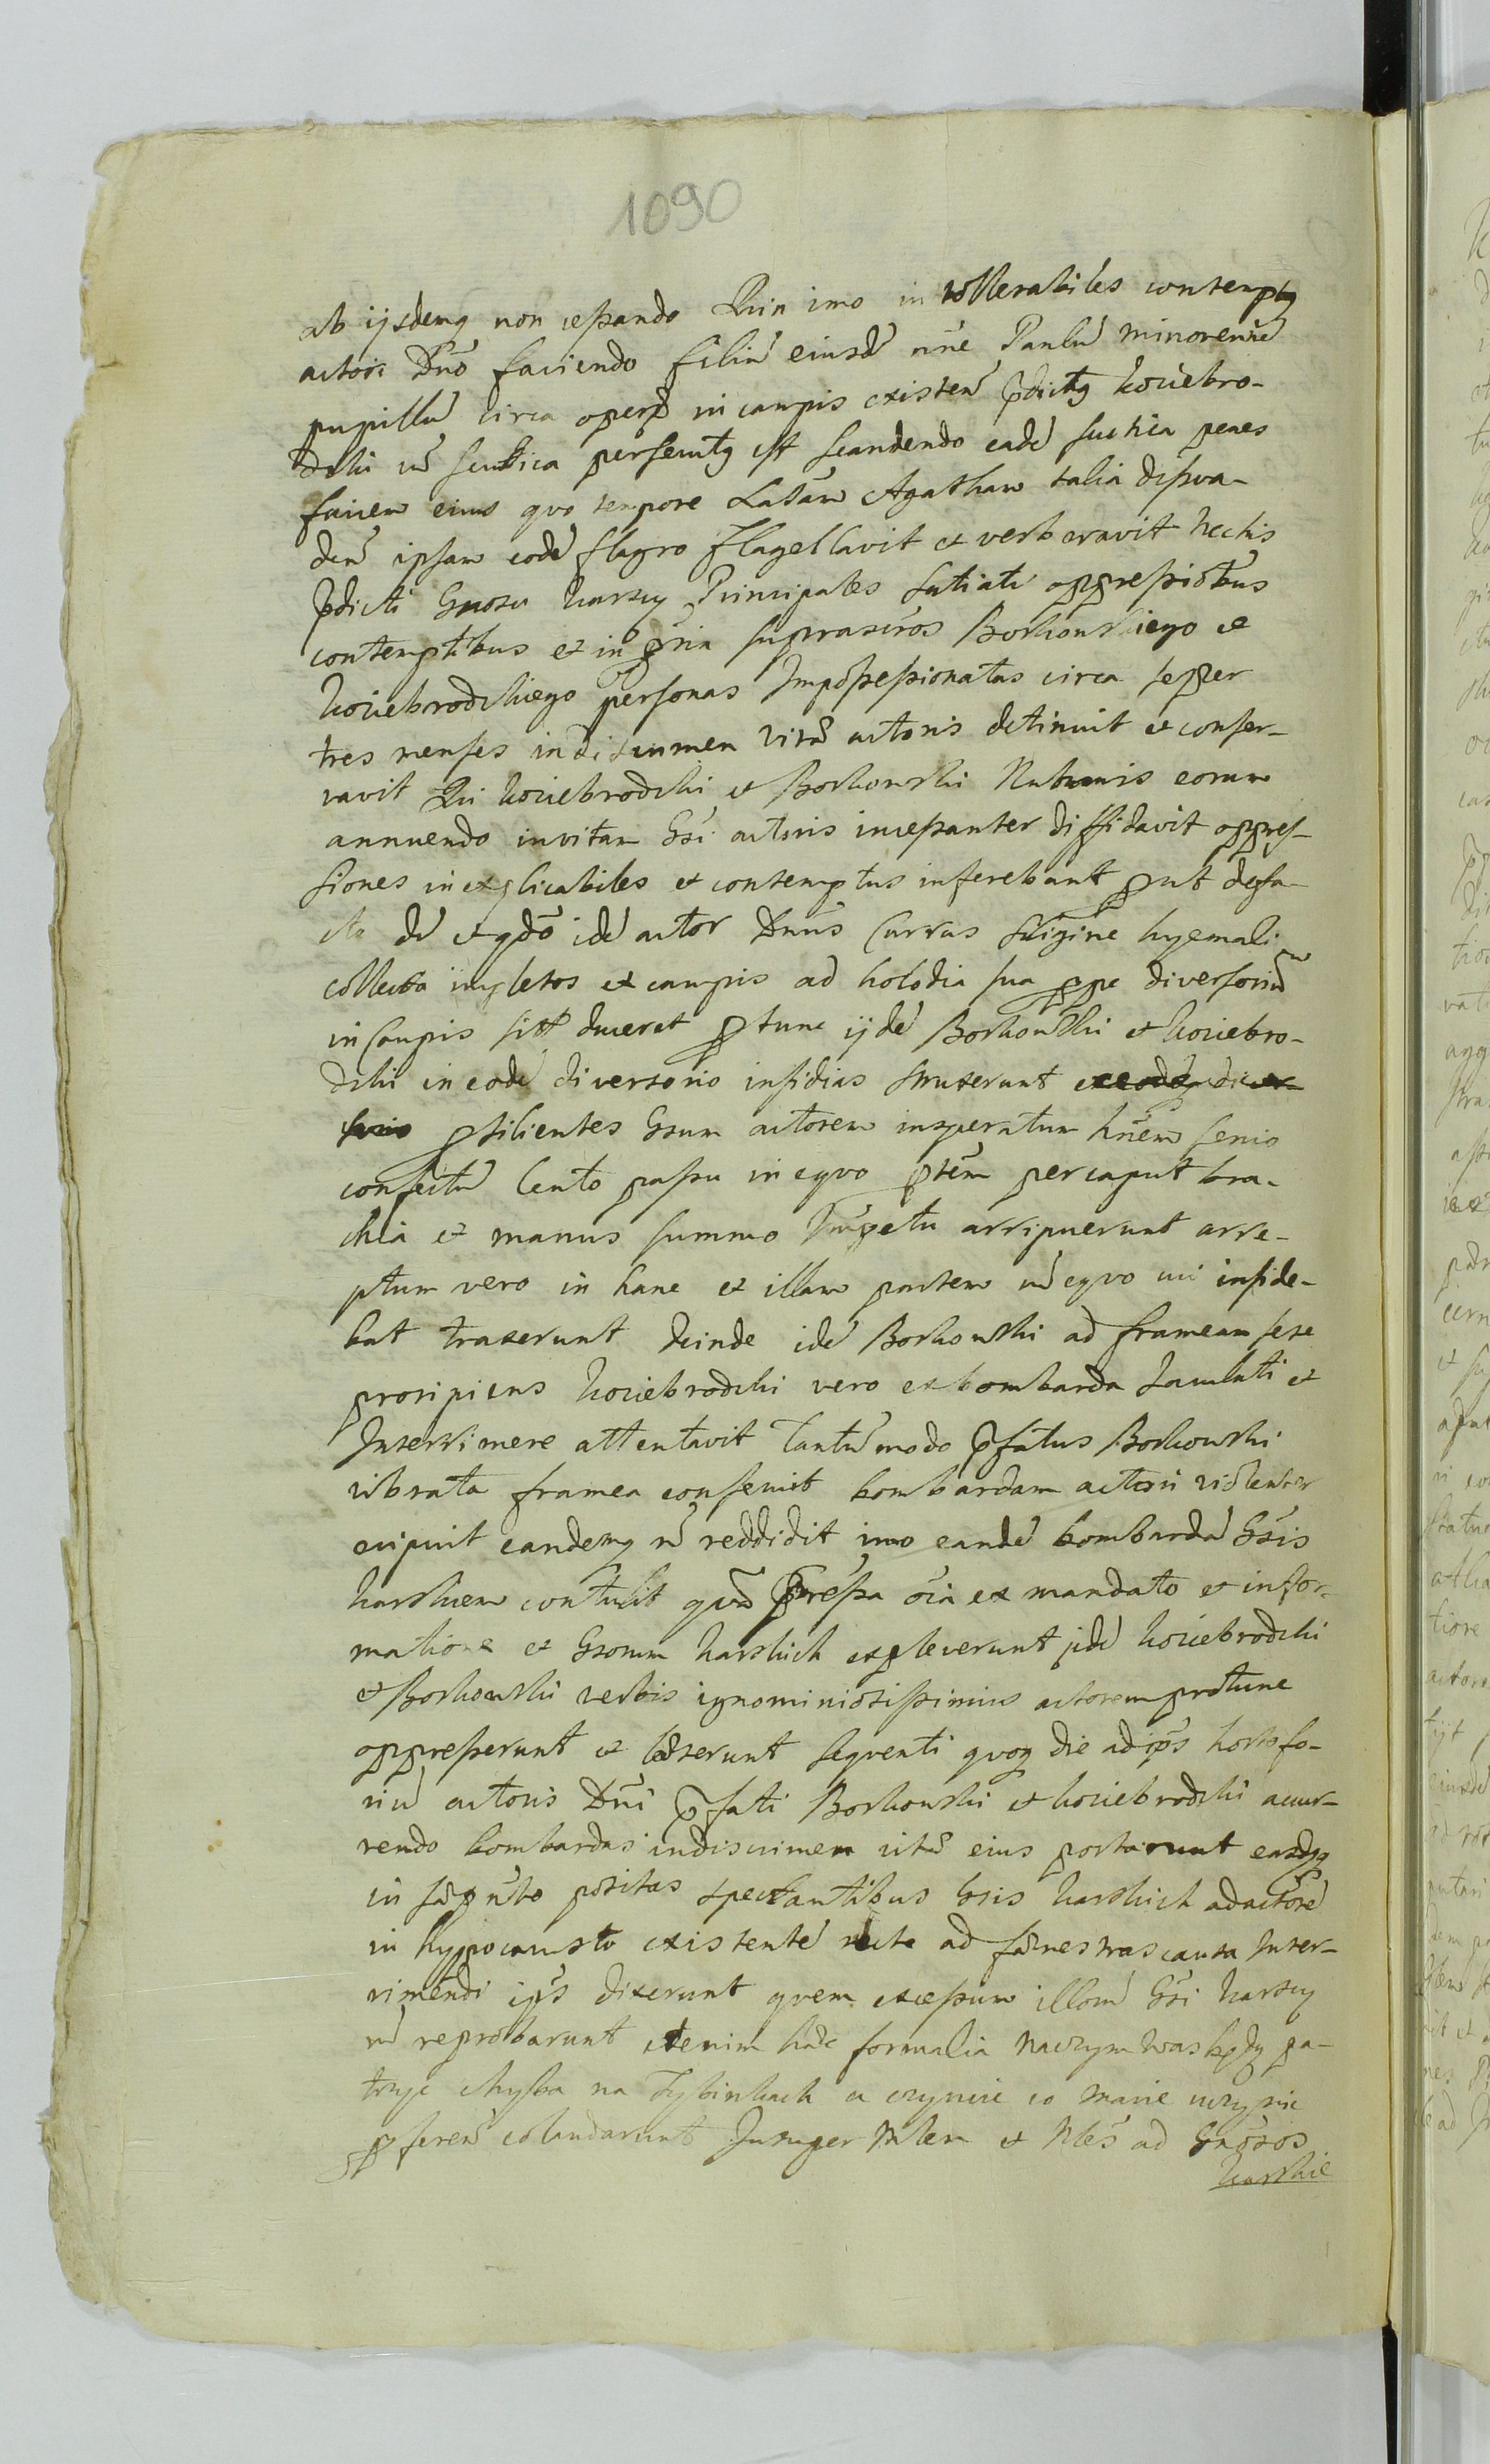 1090
ab ijsdemq non cessando Quin imo in tollerabiles contemptq
actori Dno faciendo filiu eiusde nne Paulu minorenne
pupillu circa opera in campis existen pdictq Kociebro-
dzki scutica persecutq est scandendo eade scuthica penes
faciem eius quo tempore Agatham talia dissva-
den ipsam eode flagro flagellavit et verberavit hectis
pdicti Gnosi Karscy Principales satiati oppressiobus
contemptibus et in pnia suprascros Borkowskiego et
Kociebrodzkiego personas Impossessionatas circa semper
tres menses in discrimen vitae actoris detinuit et conser-
vavit Qui Kociebrodzki et Borkowski Nutumis eorum
annuendo invitam Gsi actoris incessanter diffidavit oppres-
siones inexplicabiles et contemptus inferebant put defa-
cto de et qdo ide actor Dnus Currus siligine hyemali
collecta impletos ex campis ad holodia sua ppe diversoriu
in Campis sitt duceret ptunc ijde Borkowski et Kociebro-
dzki in eode diversorio insidias struxerunt
psilientes Gsum actorem insperatum hnem senio
confectu lento passu in equo ptem per caput bra-
chia et manus summo Impetu arripuerunt arre-
ptum vero in hanc et illam partem equo cui inside-
bat traxerunt deinde ide Borkowski ad frameam sese
proripiens Kociebrodzki vero ex bombarda Jaculati et
Interimere attentavit Tantumodo pfatus Borkowski
vibrata framea consecuit bombardam actori violenter
eripuit eandemq n reddidit imo eande bombarda Gsis
Karskiem contulit qua pressa oia ex mandato et infor-
matione et Gsorum Karskich expleverunt jide Kociebrodzki
et Borkowski verbis ignominiosissimis actorem protunc
oppresserunt et laeserunt sequenti quoq die ad ips hortifo-
riu actoris Dni pfati Borkowski et Kociebrodzki accur-
rendo bombardas in discrimen vitae eius portarunt easdq
in positas spectantibus Gsis Karskich ad actore
in hypocausto existente recte ad faenestras causa Inter-
rimendi ips dixerunt quem excessum illoru Gsi Karscy
n reprobarunt etenim haec formalia niewzym was kędy pa-
trzyc chyba na Tybinkach a czyncie co macie uczynic
pferen colaudarunt Insuper Mlem et Nles ad Gnosos
Karskie